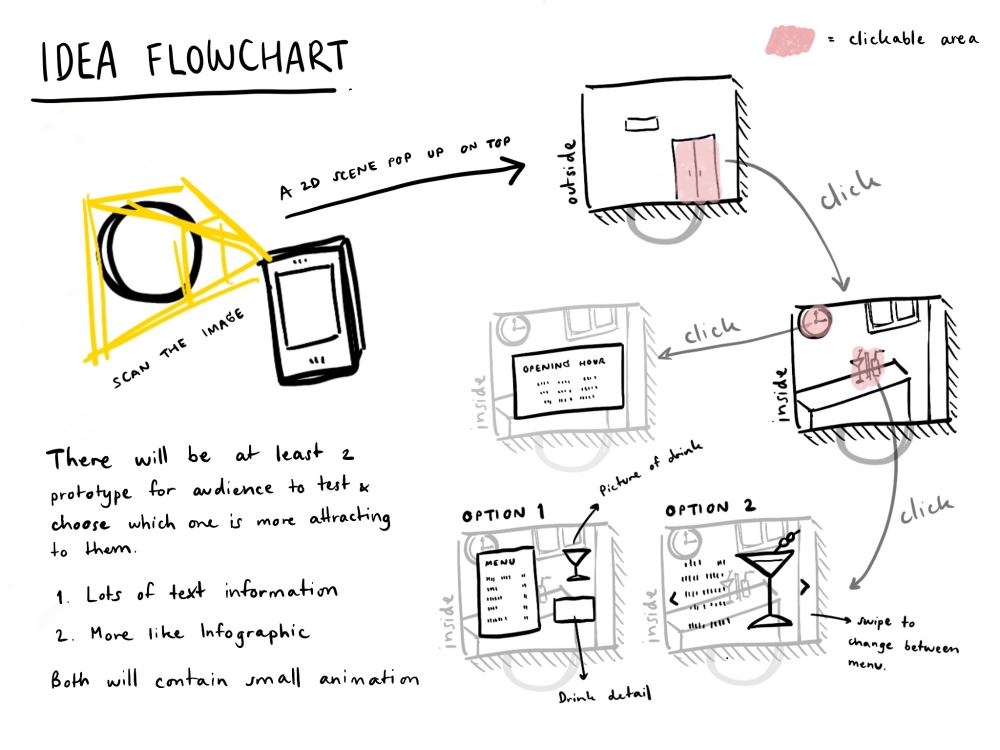 IDEA FLOWCHART
= clickable area
A 2D SCENE POP UP ON TOP
outside
click
SCAN THE IMAGE
click
inside
OPENING HOUR
inside
There will be at least 2
prototype for audience to test &
choose which one is more attracting
to them.
1. Lots of text information
2. More like Infographic
Both will contain small animation
Picture of drink
click
OPTION 1
MENU
inside
Drink detail
OPTION 2
inside
<
>
swipe to
change between
menu.